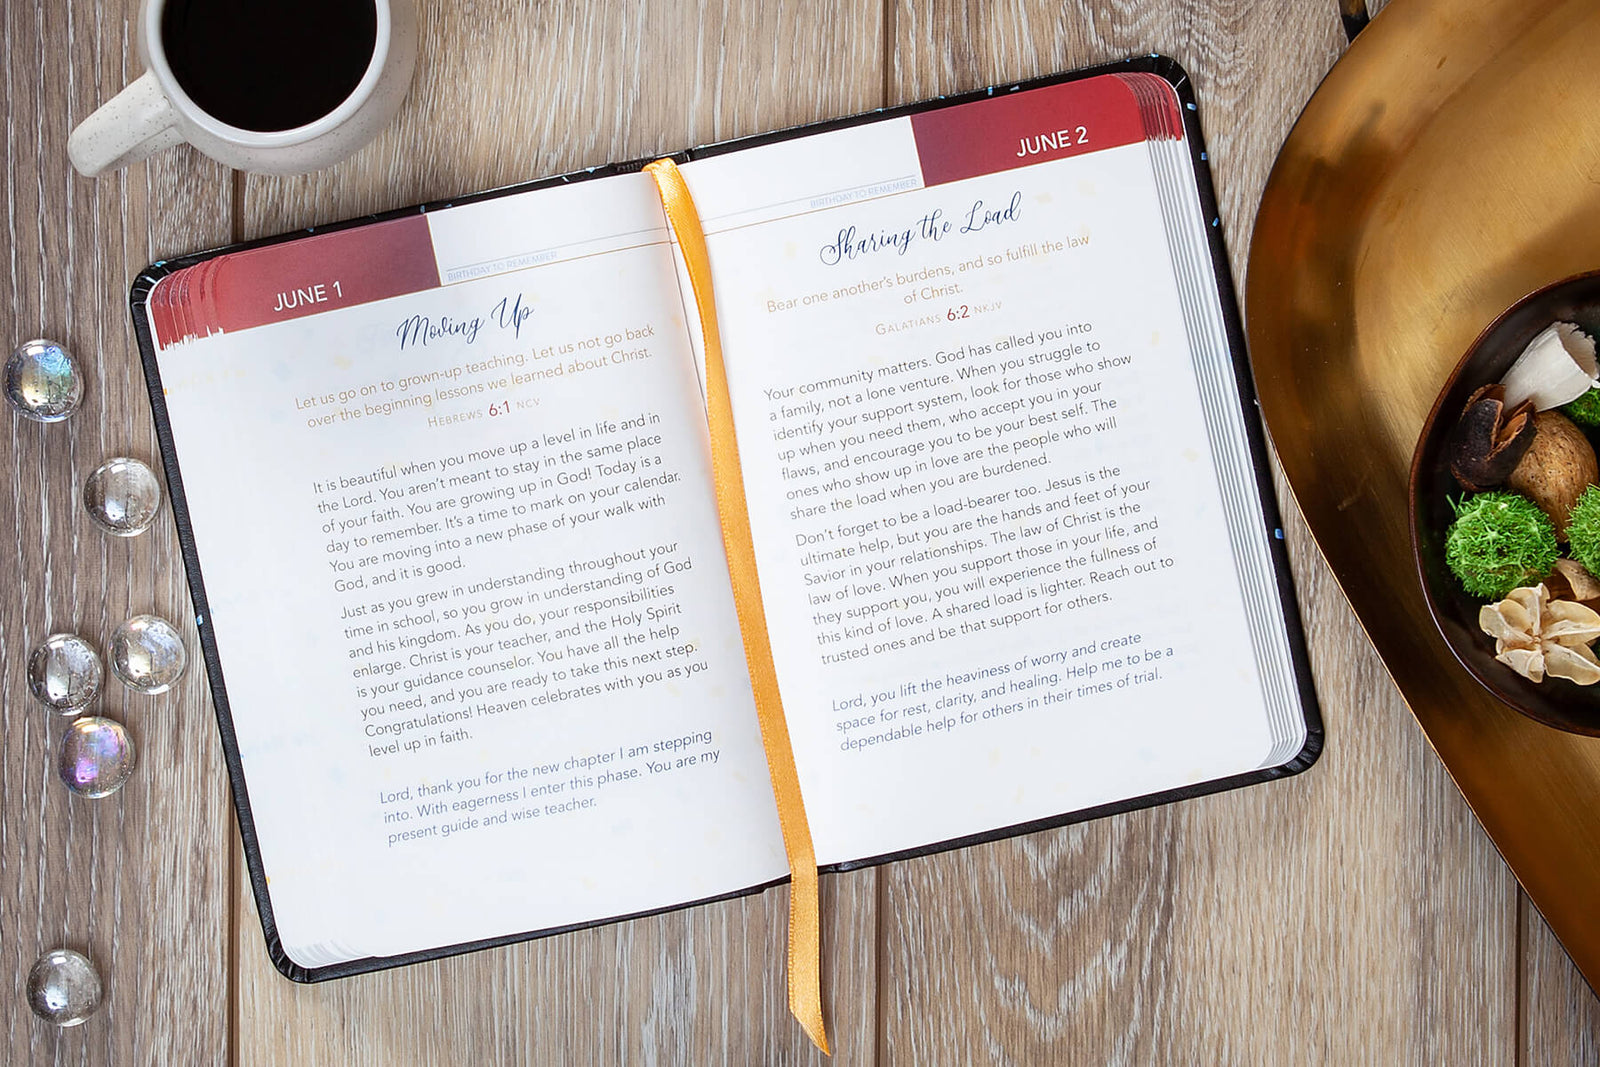 JUNE 1
BIRTHDAY TO REMEMBER
Moving Up
Let us go on to grown-up teaching. Let us not go back
over the beginning lessons we learned about Christ.
HEBREWS 6:1 NCV
It is beautiful when you move up a level in life and in
the Lord. You aren't meant to stay in the same place
of your faith. You are growing up in God! Today is a
day to remember. It's a time to mark on your calendar.
You are moving into a new phase of your walk with
God, and it is good.
Just as you grew in understanding throughout your
time in school, so you grow in understanding of God
and his kingdom. As you do, your responsibilities
enlarge. Christ is your teacher, and the Holy Spirit
is your guidance counselor. You have all the help
you need, and you are ready to take this next step.
Congratulations! Heaven celebrates with you as you
level up in faith.
Lord, thank you for the new chapter I am stepping
into. With eagerness I enter this phase. You are my
present guide and wise teacher.
JUNE 2
BIRTHDAY TO REMEMBER
Sharing the Load
Bear one another's burdens, and so fulfill the law
of Christ.
GALATIANS 6:2 NKJV
Your community matters. God has called you into
a family, not a lone venture. When you struggle to
identify your support system, look for those who show
up when you need them, who accept you in your
flaws, and encourage you to be your best self. The
ones who show up in love are the people who will
share the load when you are burdened.
Don't forget to be a load-bearer too. Jesus is the
ultimate help, but you are the hands and feet of your
Savior in your relationships. The law of Christ is the
law of love. When you support those in your life, and
they support you, you will experience the fullness of
this kind of love. A shared load is lighter. Reach out to
trusted ones and be that support for others.
Lord, you lift the heaviness of worry and create
space for rest, clarity, and healing. Help me to be a
dependable help for others in their times of trial.